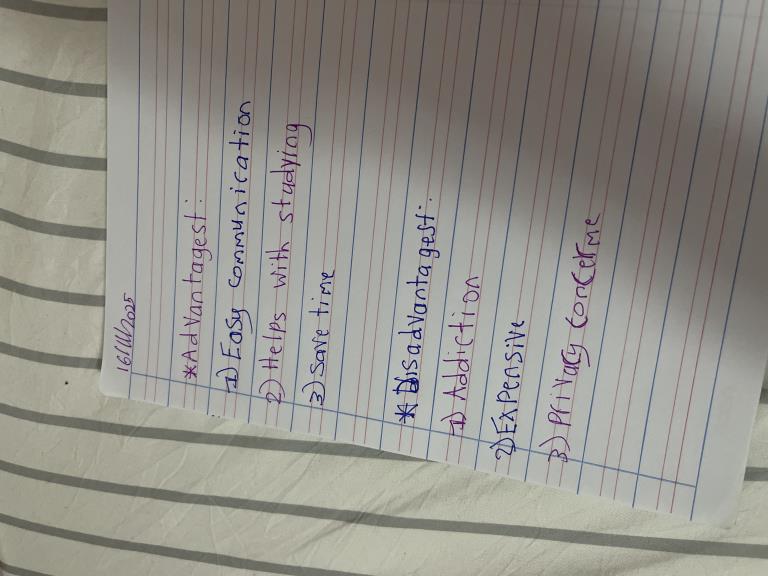 16/11/2025
*Advantagest:
1) Easy communication
2) Helps with studying
3) Save time
*Disadvantagest:
1) Addiction
2) Expensive
3) Privacy concerme